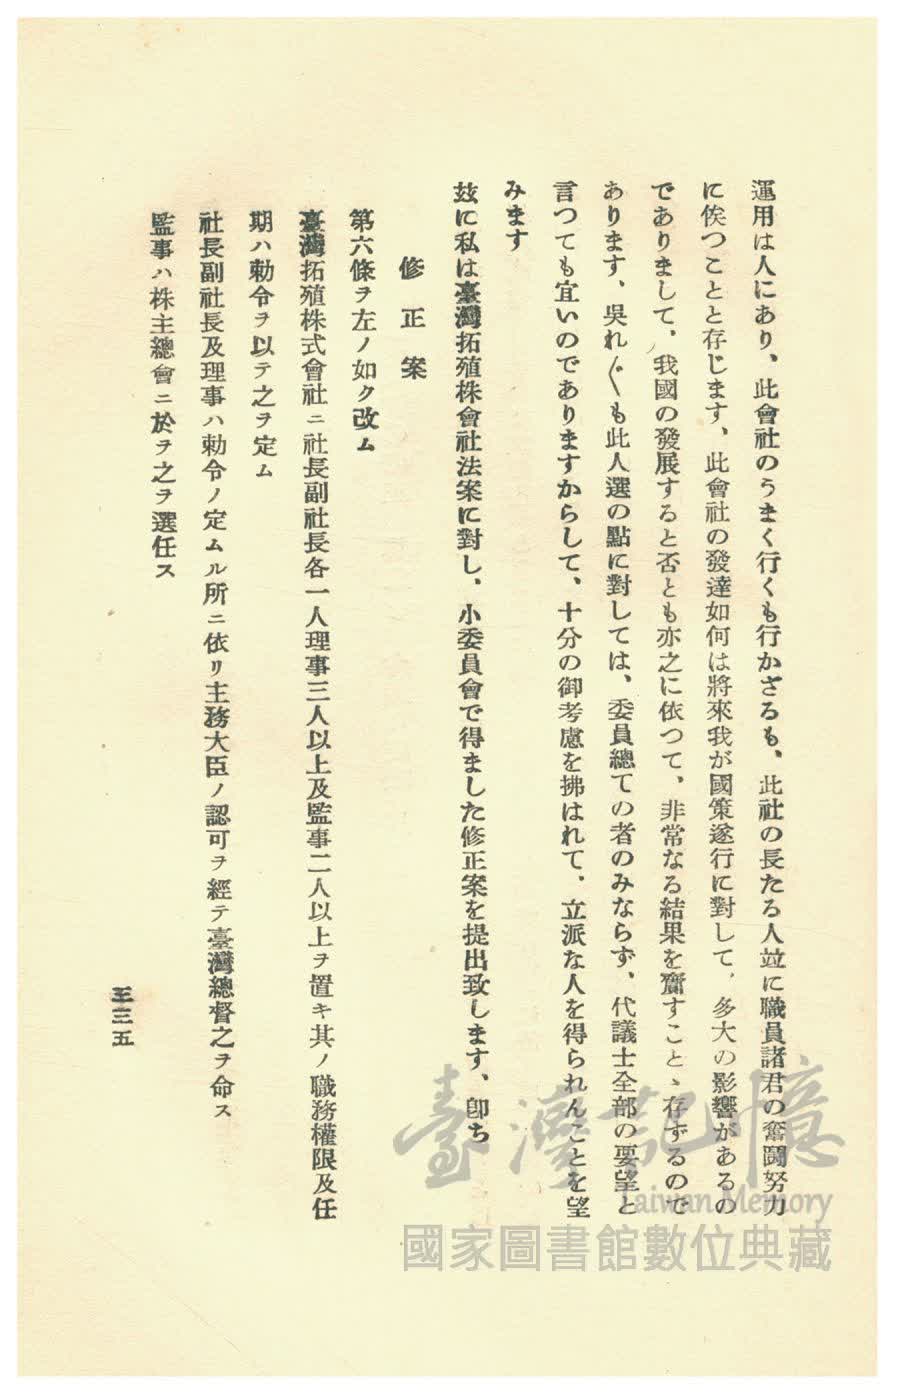 運用は人にあり、此會社のうまく行くも行かざるも、此社の長たる人竝に職員諸君の奮鬪努力
に俟つことと存じます、此會社の發達如何は將來我が國策遂行に對して、多大の影響があるの
でありまして、我國の發展すると否とも亦之に依つて、非常なる結果を齎すことゝ存ずるので
あります、吳れ〲も此人選の點に對しては、委員總ての者のみならず、代議士全部の要望と
言つても宜いのでありますからして、十分の御考慮を拂はれて、立派な人を得られんことを望
みます
玆に私は臺灣拓殖株會社法案に對し、小委員會で得ました修正案を提出致します、卽ち
修正案
第六條ヲ左ノ如ク改ム
臺灣拓殖株式會社ニ社長副社長各一人理事三人以上及監事二人以上ヲ置キ其ノ職務權限及任
期ハ勅令ヲ以テ之ヲ定ム
社長副社長及理事ハ勅令ノ定ムル所ニ依リ主務大臣ノ認可ヲ經テ臺灣總督之ヲ命ス
監事ハ株主總會ニ於ヲ之ヲ選任ス
三三五
臺灣記憶
Taiwan Memory
國家圖書館數位典藏